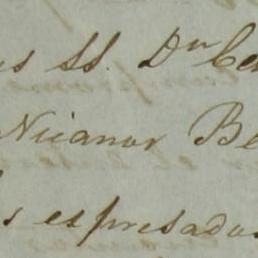 us SS. Dn Ce
Nicanor Be
s espresados